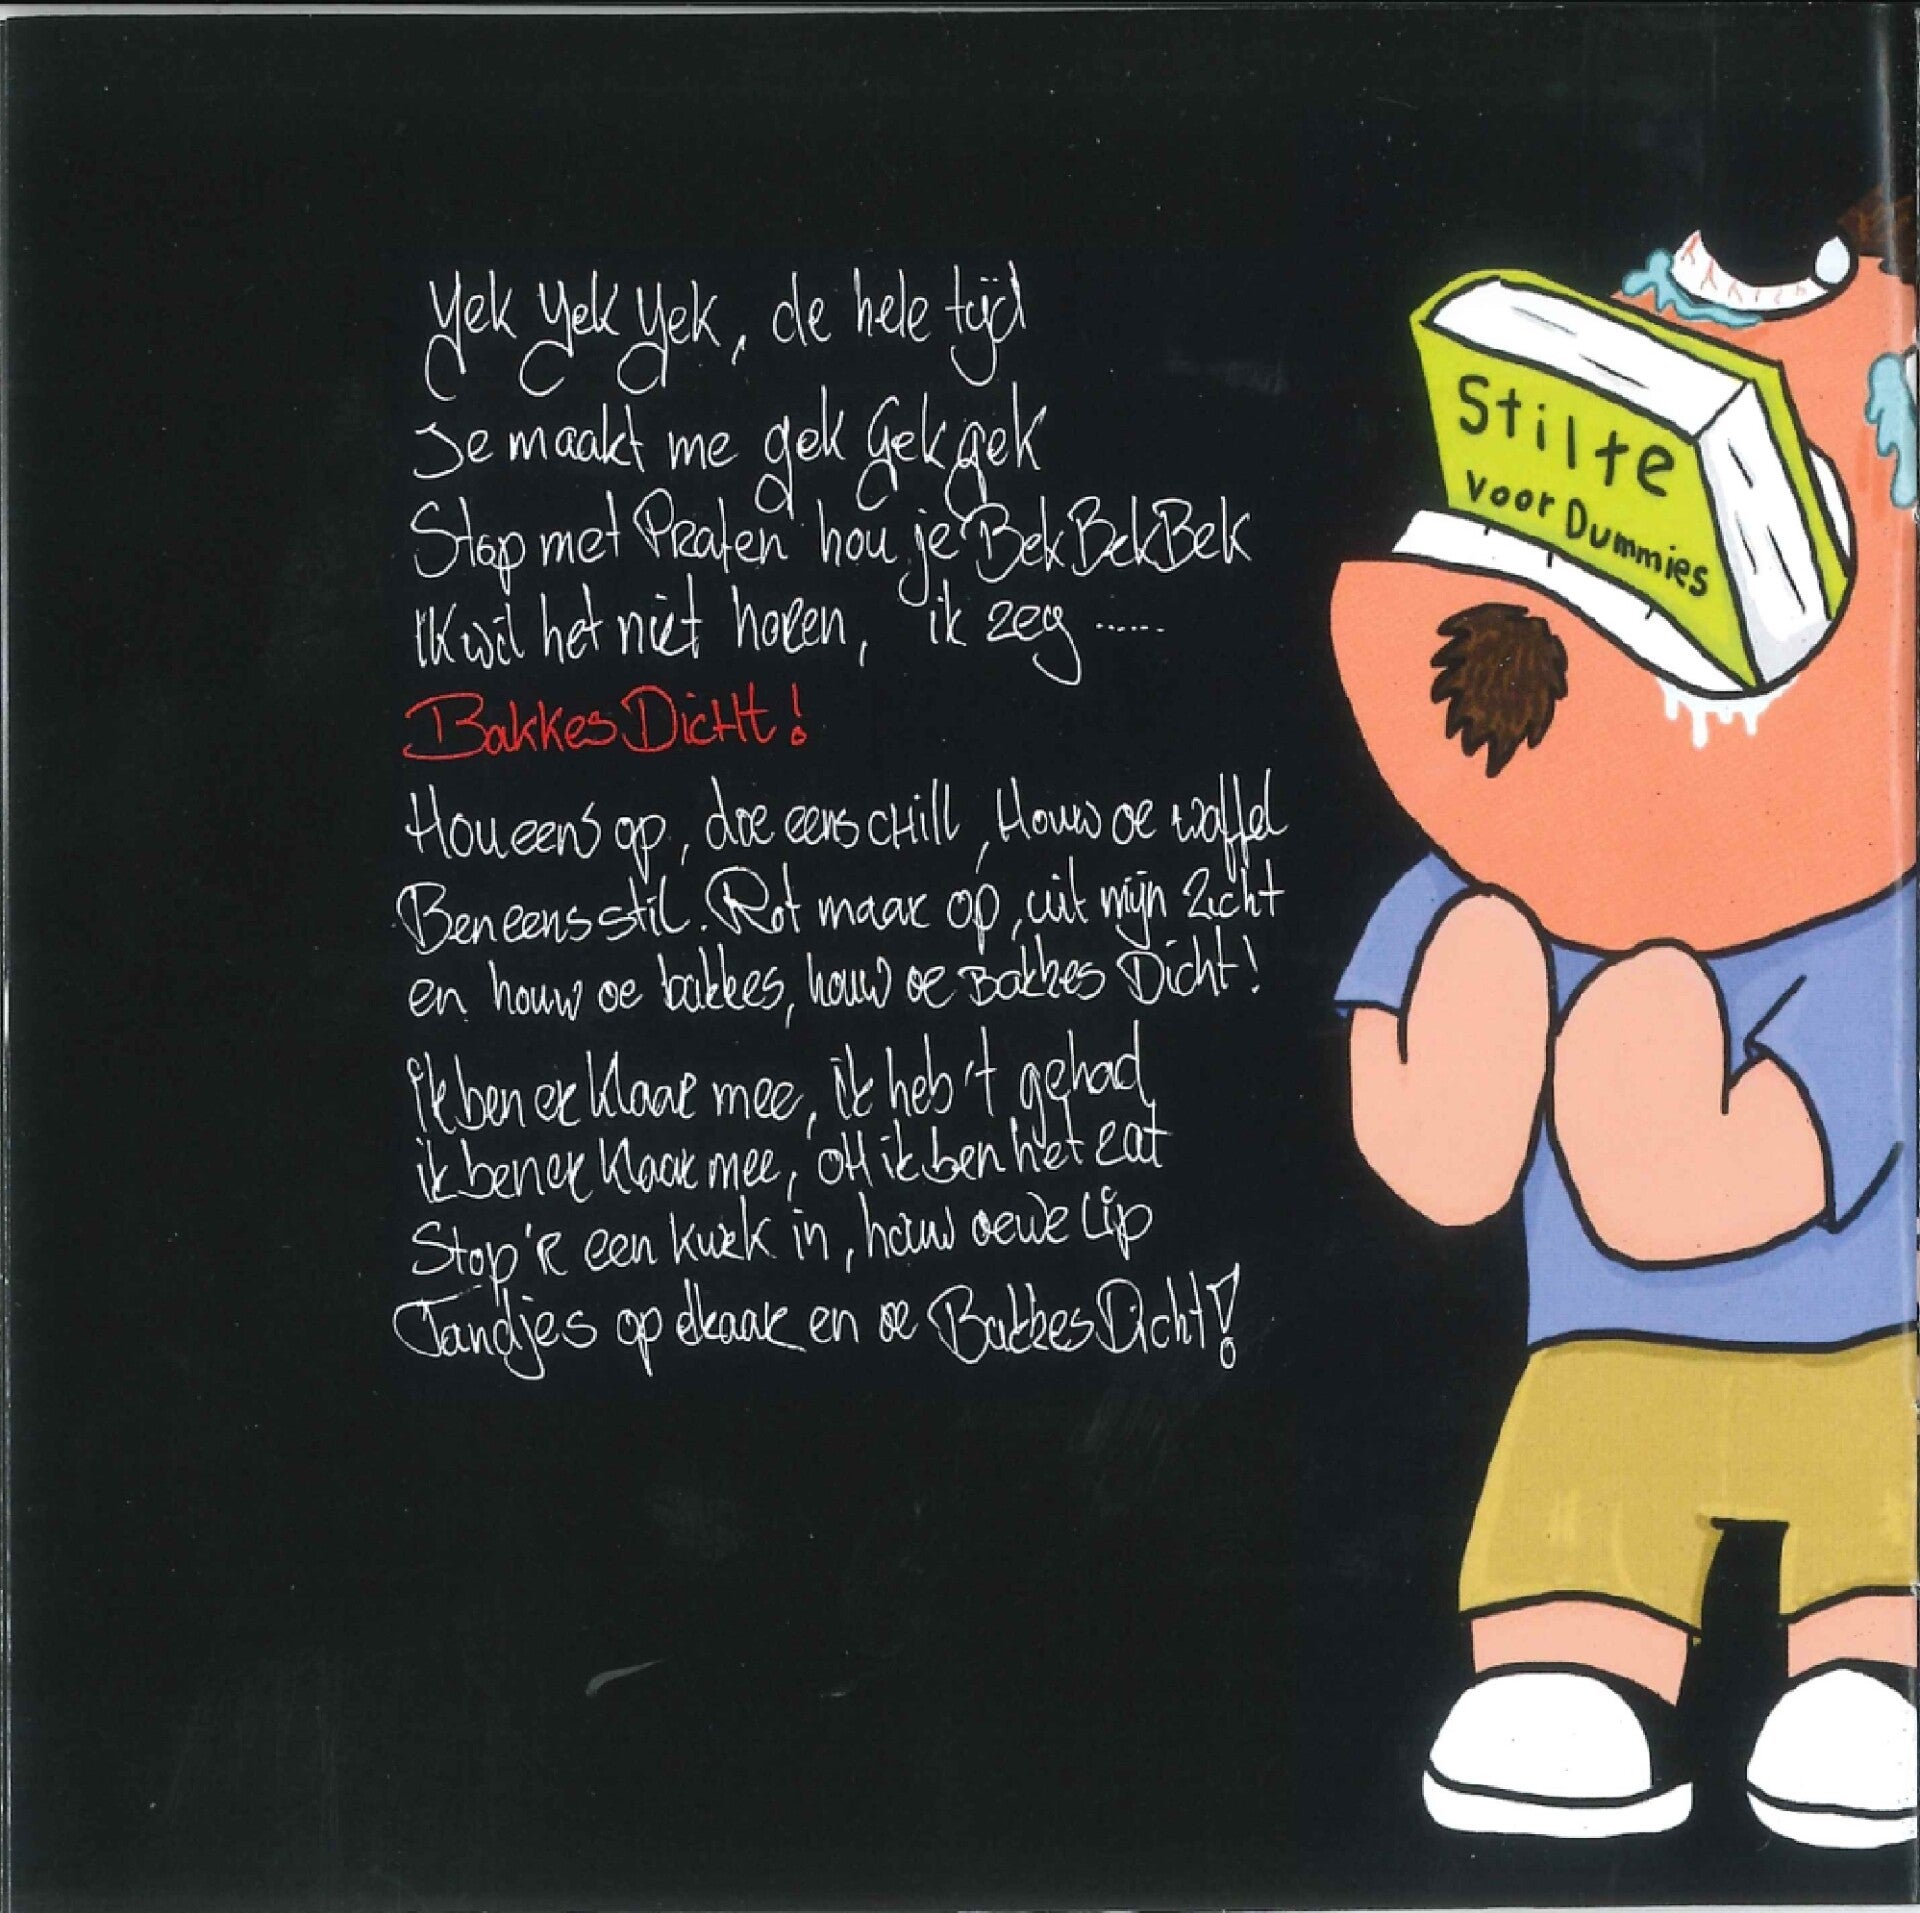 Yek Yek Yek, de hele tijd
Je maakt me gek Gek gek
Stop met Praten hou je Bek Bek Bek
Ik wil het niet horen, ik zeg ......
Bakkes Dicht!
Hou eens op, doe eens chill, Houw oe waffel
Ben eens stil. Rot maar op, uit mijn zicht
en houw oe bakkes, houw oe Bakkes Dicht!
ik ben er klaar mee, ik heb 't gehad
ik ben er klaar mee, oH ik ben het zat
Stop 'r een kurk in, houw oewe Lip
Tandjes op elkaar en oe Bakkes Dicht!
Stilte
voor Dummies